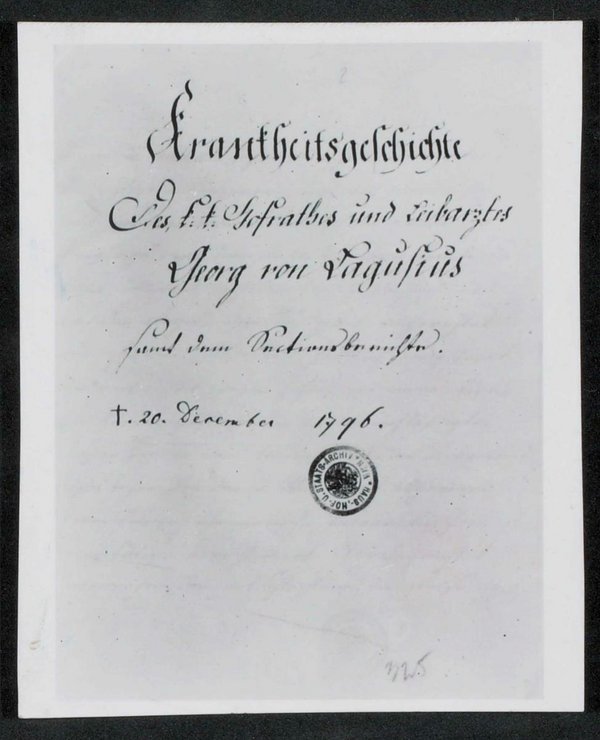 2
Krankheitsgeschichte
Des k. k. Hofrathes und Leibarztes
Georg von Lagusius
samt dem Sectionsberichte.
†. 20. December 1796.
HAUS-, HOF- U. STAATS-ARCHIV * WIEN *